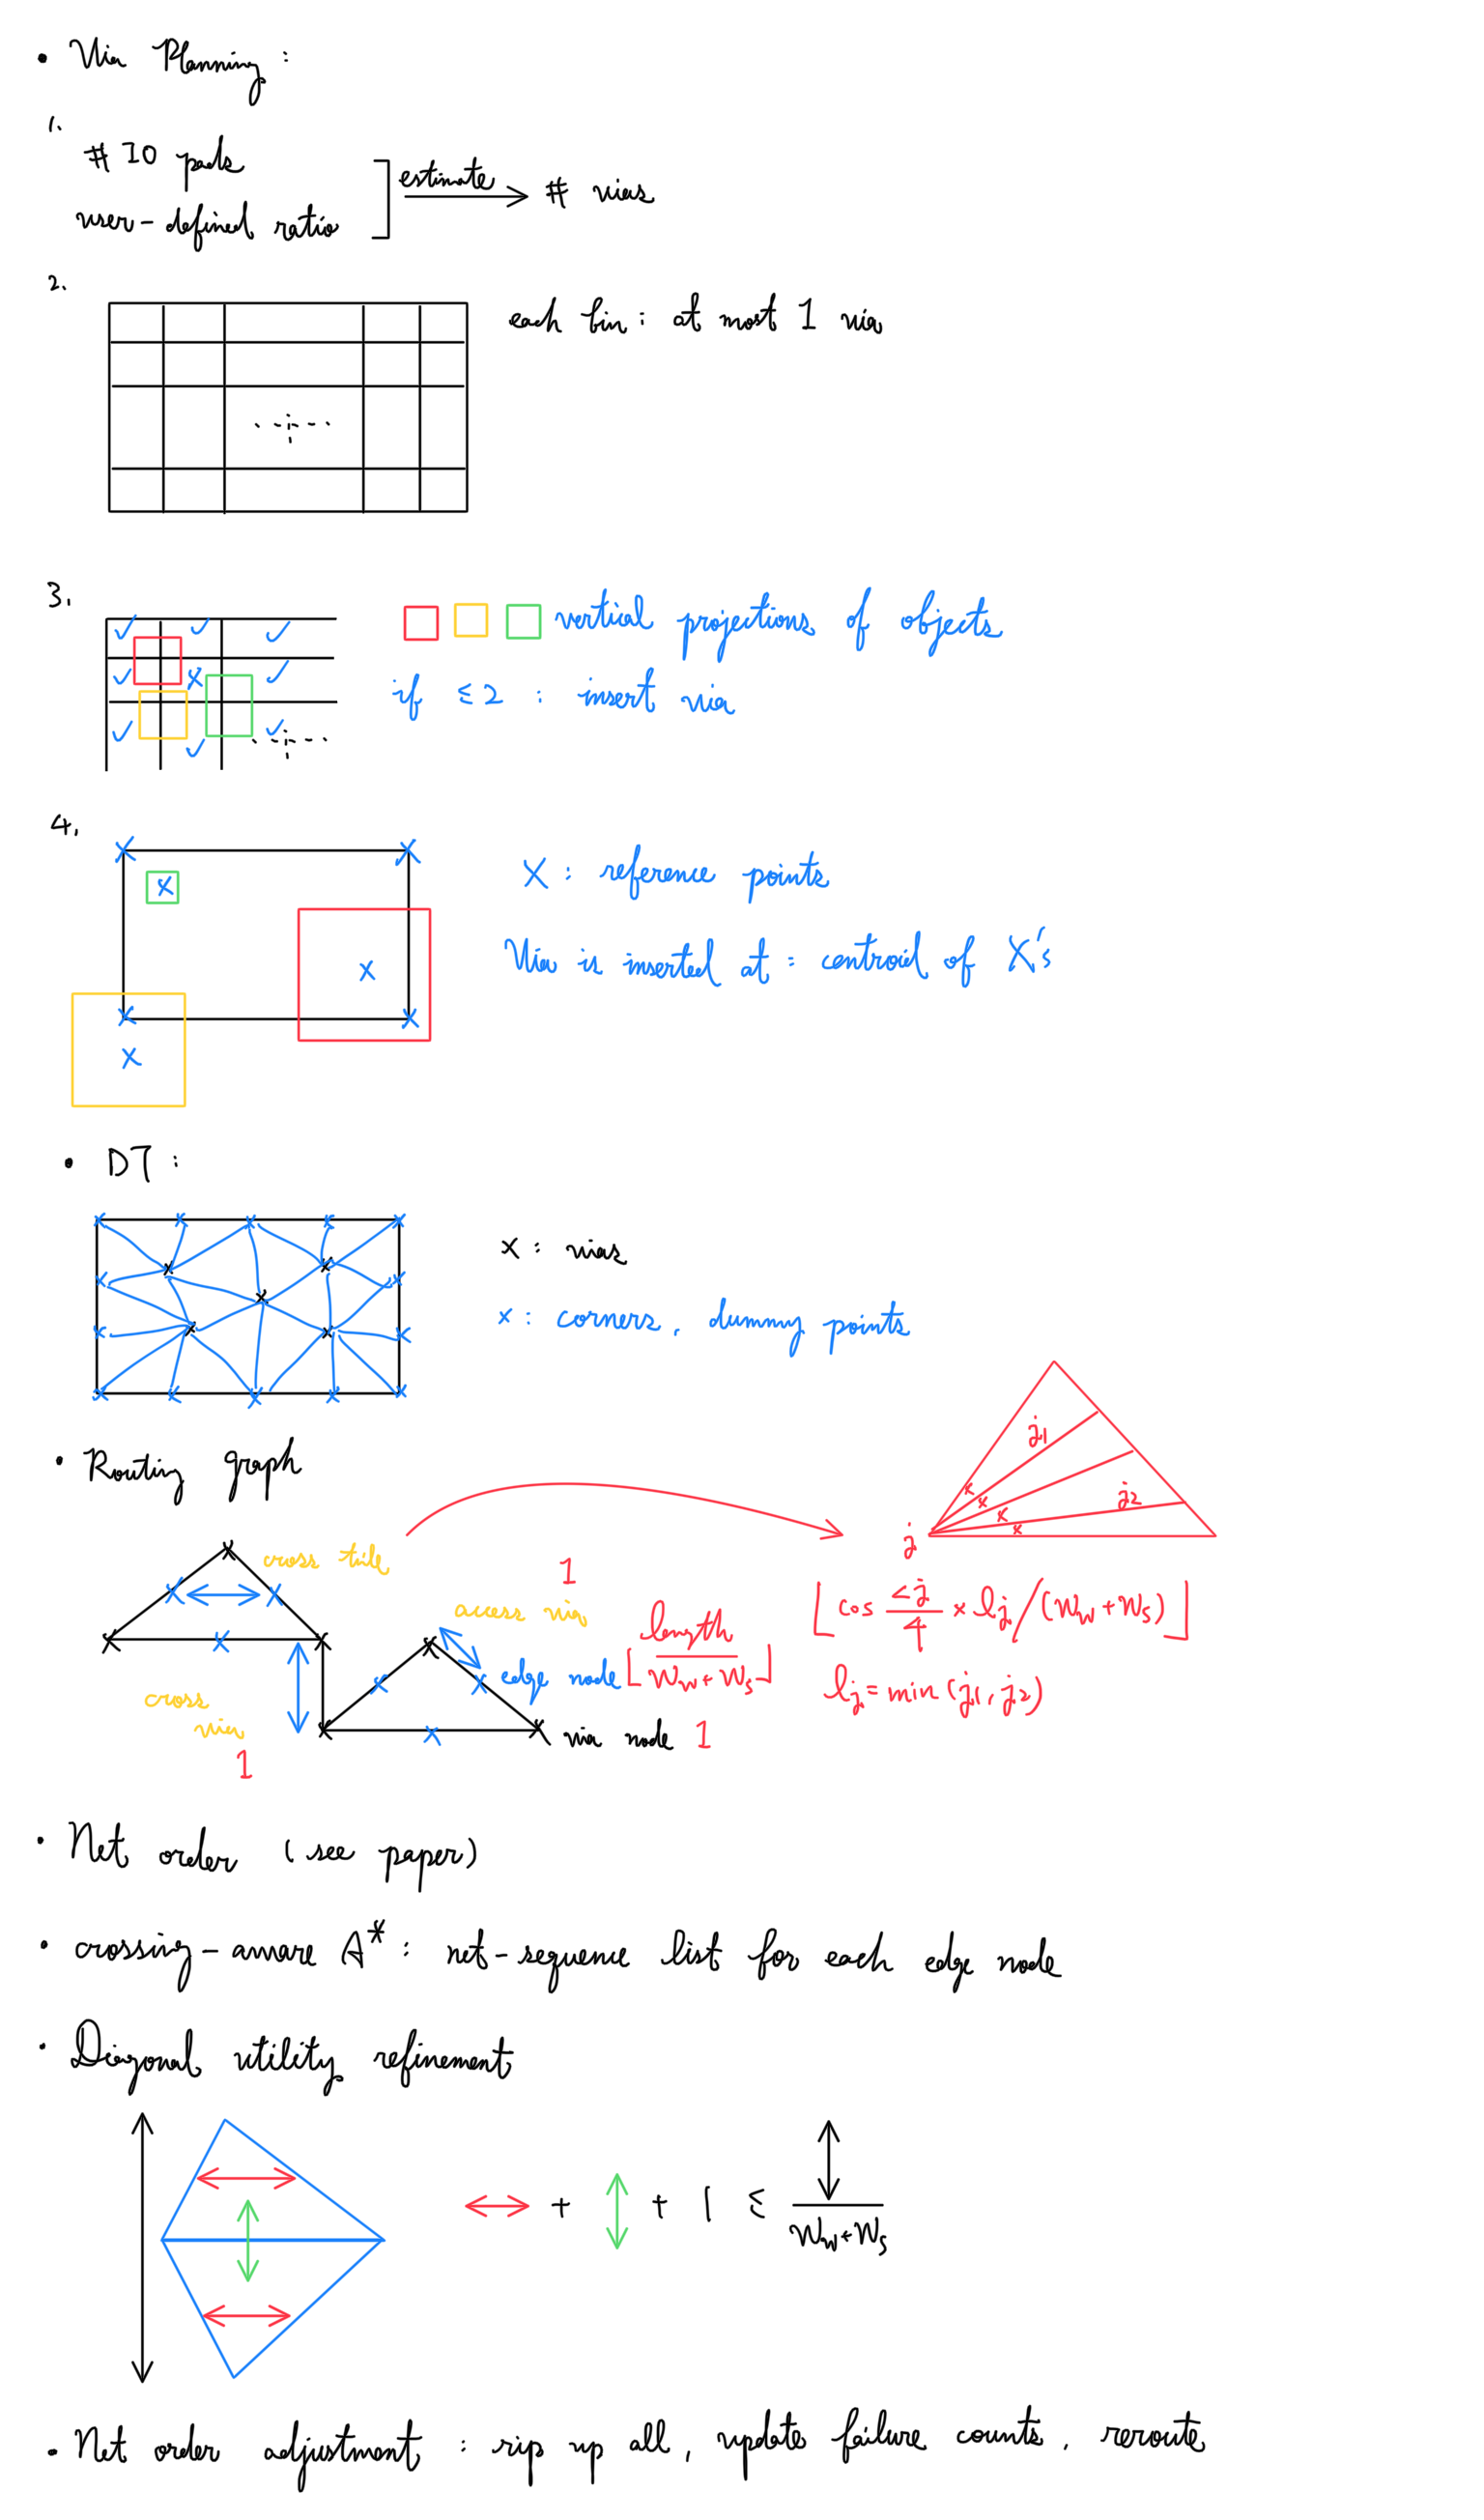 • Via Planning :
1.
# IO pads
user-defined ratio
estimate
# vias
2.
each bin : at most 1 via
3.
vertical projections of objects
if ≤ 2 : insert via
4.
X : reference points
Via is inserted at : centroid of X's
• DT :
x : vias
x : corners, dummy points
• Routing graph
cross tile
access via
1
edge node
⌊ length / (Ww + Ws) ⌋
cross via
1
via node 1
j1
j2
j
⌊ cos ∠j/4 × lj / (Ww + Ws) ⌋
lj = min (j1, j2)
• Net order (see paper)
• crossing-aware A* : net-sequence list for each edge node
• Diagonal utility refinement
↔ + ↕ + 1 ≤ ↕ / (Ww + Ws)
• Net order adjustment : rip up all, update failure counts, reroute